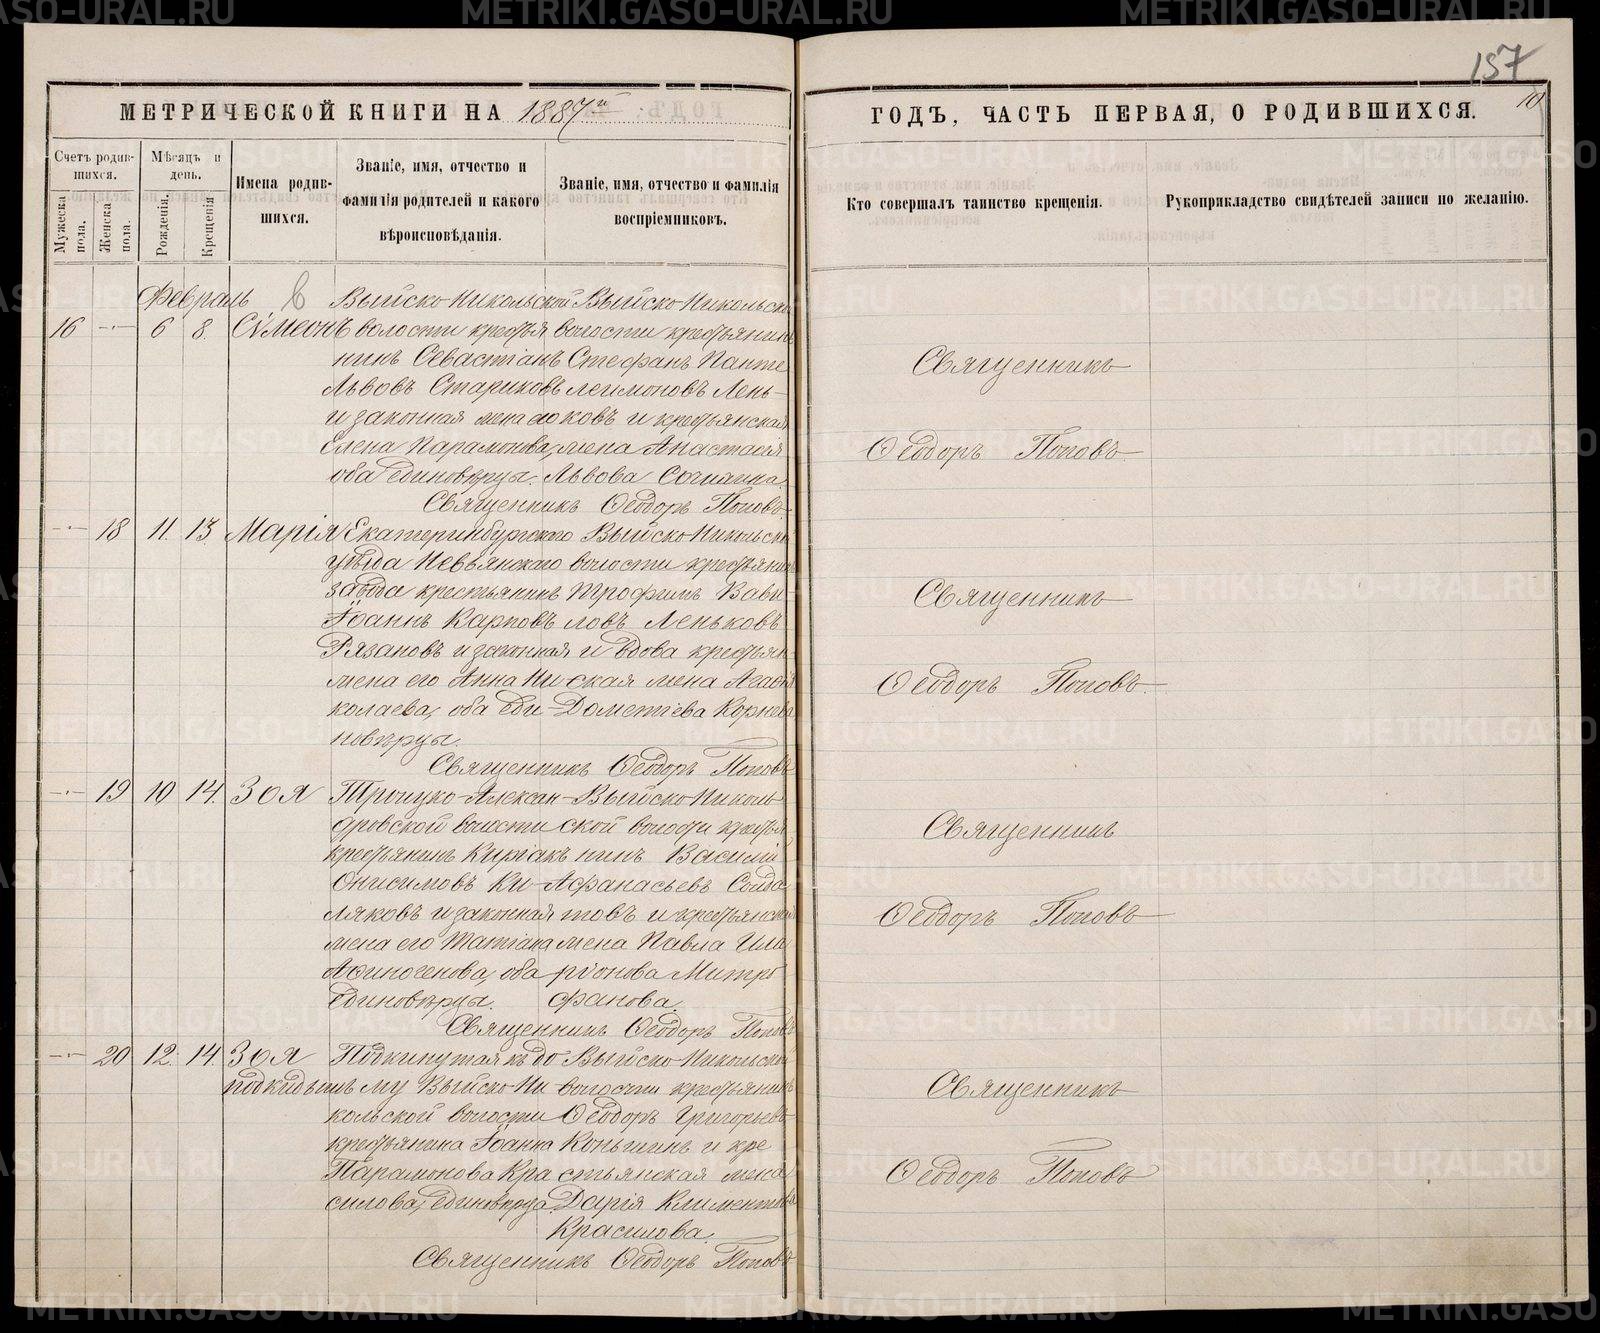 157
10
МЕТРИЧЕСКОЙ КНИГИ НА 1887й
ГОДЪ, ЧАСТЬ ПЕРВАЯ, О РОДИВШИХСЯ.
Счетъ родив-
шихся.
Мужеска пола.
Женска пола.
Мѣсяцъ и
день.
Рожденія.
Крещенія
Имена родив-
шихся.
Званіе, имя, отчество и
фамилія родителей и какого
вѣроисповѣданія.
Званіе, имя, отчество и фамилія
воспріемниковъ.
Кто совершалъ таинство крещенія.
Рукоприкладство свидѣтелей записи по желанію.
Февраль
16 —·— 6 8. Сѵмеонъ
Выйско-Никольской
волости крестья
нинъ Севастіанъ
Львовъ Стариковъ
и законная жена его
Елена Парамонова,
оба единовѣрцы.
Выйско-Никольской
волости крестьянинъ
Стефанъ Панте
леимоновъ Лень-
ковъ и крестьянская
жена Анастасія
Львова
Священникъ Ѳеодоръ Поповъ
Священникъ
Ѳеодоръ Поповъ.
—·— 18 11. 13. Марія
Екатеринбургскаго
уѣзда Невьянскаго
завода крестьянинъ
Іоаннъ Карповъ
Рязановъ и законная
жена его Анна Ни
колаева, оба еди-
новѣрцы.
Выйско-Никольской
волости крестьянинъ
Трофимъ Вави-
ловъ Леньковъ
и вдова крестьян
ская жена Агафія
Дометіева
Священникъ Ѳеодоръ Поповъ
Священникъ
Ѳеодоръ Поповъ.
—·— 19 10 14. Зоя
Троицко-Алексан-
дровской волости
крестьянинъ Киріакъ
Онисимовъ Ки-
ляковъ и законная
жена его Татіана
Аѳиногенова, оба
единовѣрцы.
Выйско-Николь
ской волости крестья
нинъ Василій
Афанасьевъ Солда
товъ и крестьянская
жена Павла Ила
ріонова Митро
фанова.
Священникъ Ѳеодоръ Поповъ
Священникъ
Ѳеодоръ Поповъ
—·— 20 12. 14. Зоя
подкидышъ
Подкинутая къ до
му Выйско-Ни
кольской волости
крестьянина Іоанна
Парамонова Кра
силова, единовѣрца.
Выйско-Никольской
волости крестьянинъ
Ѳеодоръ Григорьевъ
Коньшинъ и кре
стьянская жена
Дарія Климентова
Красилова.
Священникъ Ѳеодоръ Поповъ
Священникъ
Ѳеодоръ Поповъ
METRIKI.GASO-URAL.RU